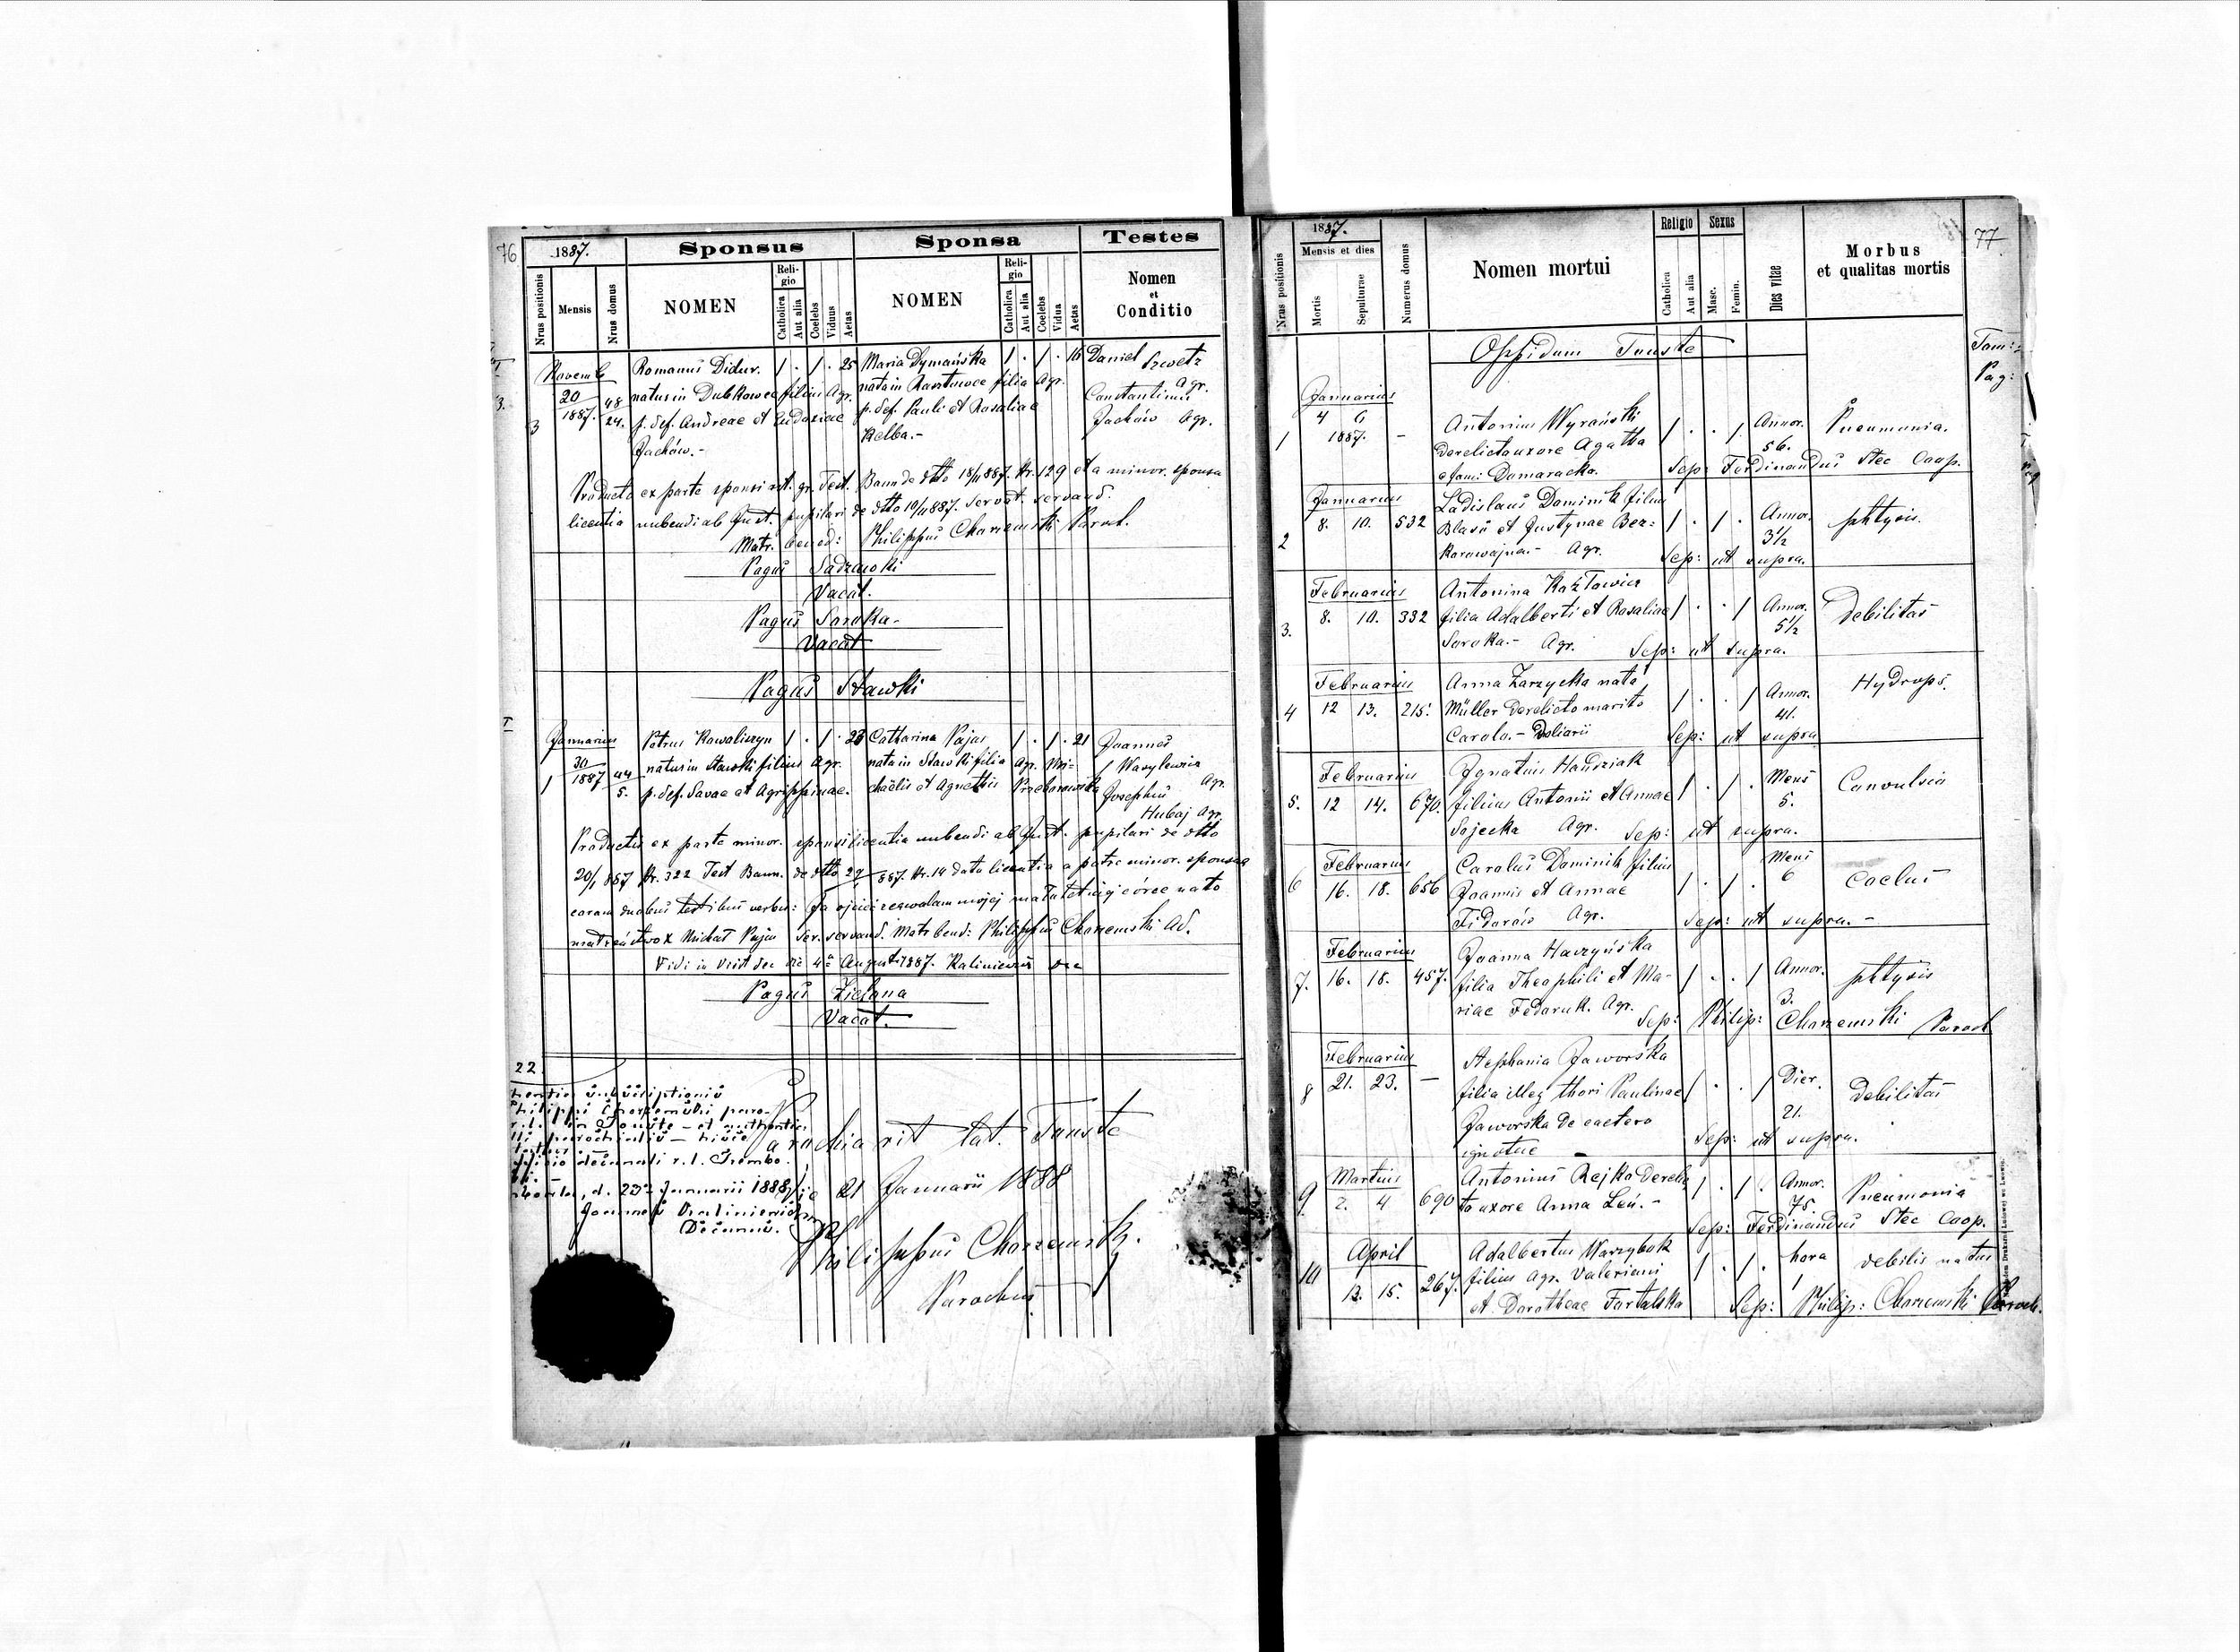 76
1887.
Sponsus
Sponsa
Testes
Nrus positionis
Mensis
Nrus domus
NOMEN
Religio
Catholica
Aut alia
Coelebs
Viduus
Aetas
NOMEN
Religio
Catholica
Aut alia
Coelebs
Vidua
Aetas
Nomen
et
Conditio
Novemb
3
20
1887.
48
24.
Romanus Didur.
natus in Dubkowce filius Agr.
p. def. Andreae et Eudoxiae
Jachów.-
1 . 1 . 25
Maria Dymańska
nata in Rasztowce filia Agr.
p. def. Pauli et Rosaliae
Kelba.-
1 . 1 . 16
Daniel
Szwetz
Agr.
Constantinus
Jachów Agr.
Producto ex parte sponsi rit. gr. Test. Bann de dtto 18/11 887. Nr. 129 et a minor. sponsa
licentia nubendi ab Just. pupilari de dtto 10/11 887. servat. servand.
Matr. bened: Philippus Charzewski Paroch.
Pagus Sadzawki
Vacat.
Pagus Soroka-
Vacat
Pagus Stawki
Januarius
1
30
1887
44
5.
Petrus Kowaliszyn
natus in Stawki filius Agr.
p. def. Savae et Agrippinae.
1 . 1 . 23
Catharina Pajas
nata in Stawki filia Agr. Mi=
chaëlis et Agnethis Przeborowska
1 . 1 . 21
Joannes
Wasylewicz
Agr.
Josephus
Hubaj Agr.
Productis ex parte minor. sponsi licentia nubendi ab Just. pupilari de dtto
20/1 887 Nr. 322 Test Bann. de dtto 29/1 887. Nr. 14 data licentia a patre minor. sponsae
coram duobus testibus verbis: Ja ojciec zezwalam mojej małoletniej córce na to
małżeństwo X Michał Pajas Ser. servand. Matr bend: Philippus Charzewski Ad.
Vidi in Visit dec die 4a Augusti 1887. Kaliniewicz Dec
Pagus Zielona
Vacat.
22.
Parochia rit lat. Touste
die 21 Januarii 1888
Philippus Charzewski.
Parochus
subscriptionis
Philippi Charzewski paro-
r. l. in Touste – et authentici
parochialis – hisce
decanali r. l. Trembo.
d. 23a Januarii 1888
Joannes Kaliniewicz
Decanus.
77
1887.
Mensis et dies
Nrus positionis
Mortis
Sepulturae
Numerus domus
Nomen mortui
Religio
Catholica
Aut alia
Sexus
Masc.
Femin.
Dies vitae
Morbus
et qualitas mortis
Oppidum Touste
Tom:
Pag:
Januarius
1
4 6
1887.
-
Antonius Wyrański
derelicta uxore Agatha
e fam: Domaracka.
1 . . 1
Annor.
56.
Pneumonia.
Sep: Ferdinandus Stec Coop.
Januarius
2
8. 10. 532
Ladislaus Dominik filius
Blasii et Justynae Bez=
korowajna.- Agr.
1 . 1 .
Annor.
3 1/2
phtysis.
Sep: ut supra.
Februarius
3.
8. 10. 332
Antonina Kozłowicz
filia Adalberti et Rosaliae
Soroka.- Agr.
1 . . 1
Annor.
5 1/2
Debilitas
Sep: ut supra.
Februarius
4
12 13. 215.
Anna Zarzycka nata
Müller derelicto marito
Carolo.- Doliarii
1 . . 1
Annor.
41.
Hydrops.
Sep: ut supra
Februarius
5.
12 14. 670.
Ignatius Handziak
filius Antonii et Annae
Sojecka Agr.
1 . 1 .
Mens
5.
Convulsio
Sep: ut supra.
Februarius
6
16. 18. 656
Carolus Dominik filius
Joannis et Annae
Fidorów Agr.
1 . 1 .
Mens
6
Coclus
Sep: ut supra.-
Februarius
7.
16. 18. 457.
Joanna Haczyńska
filia Theophili et Ma-
riae Fedoruk. Agr.
1 . . 1
Annor.
3.
phtysis
Sep: Philip: Charzewski Paroch
Februarius
8
21. 23. -
Stephania Jaworska
filia illeg thori Paulinae
Jaworska de caetero
ignotae
1 . . 1
Dier.
21.
Debilitas
Sep: ut supra.
Martius
9
2. 4 690
Antonius Rejka derelic
ta uxore Anna Leń.-
1 . 1 .
Annor.
75.
Pneumonia
Sep: Ferdinandus Stec Coop.
April
10
13. 15. 267.
Adalbertus Warzybok
filius Agr. Valeriani
et Dorotheae Fortalska
1 . 1 .
hora
1
debilis natus
Sep: Philip: Charzewski Paroch.